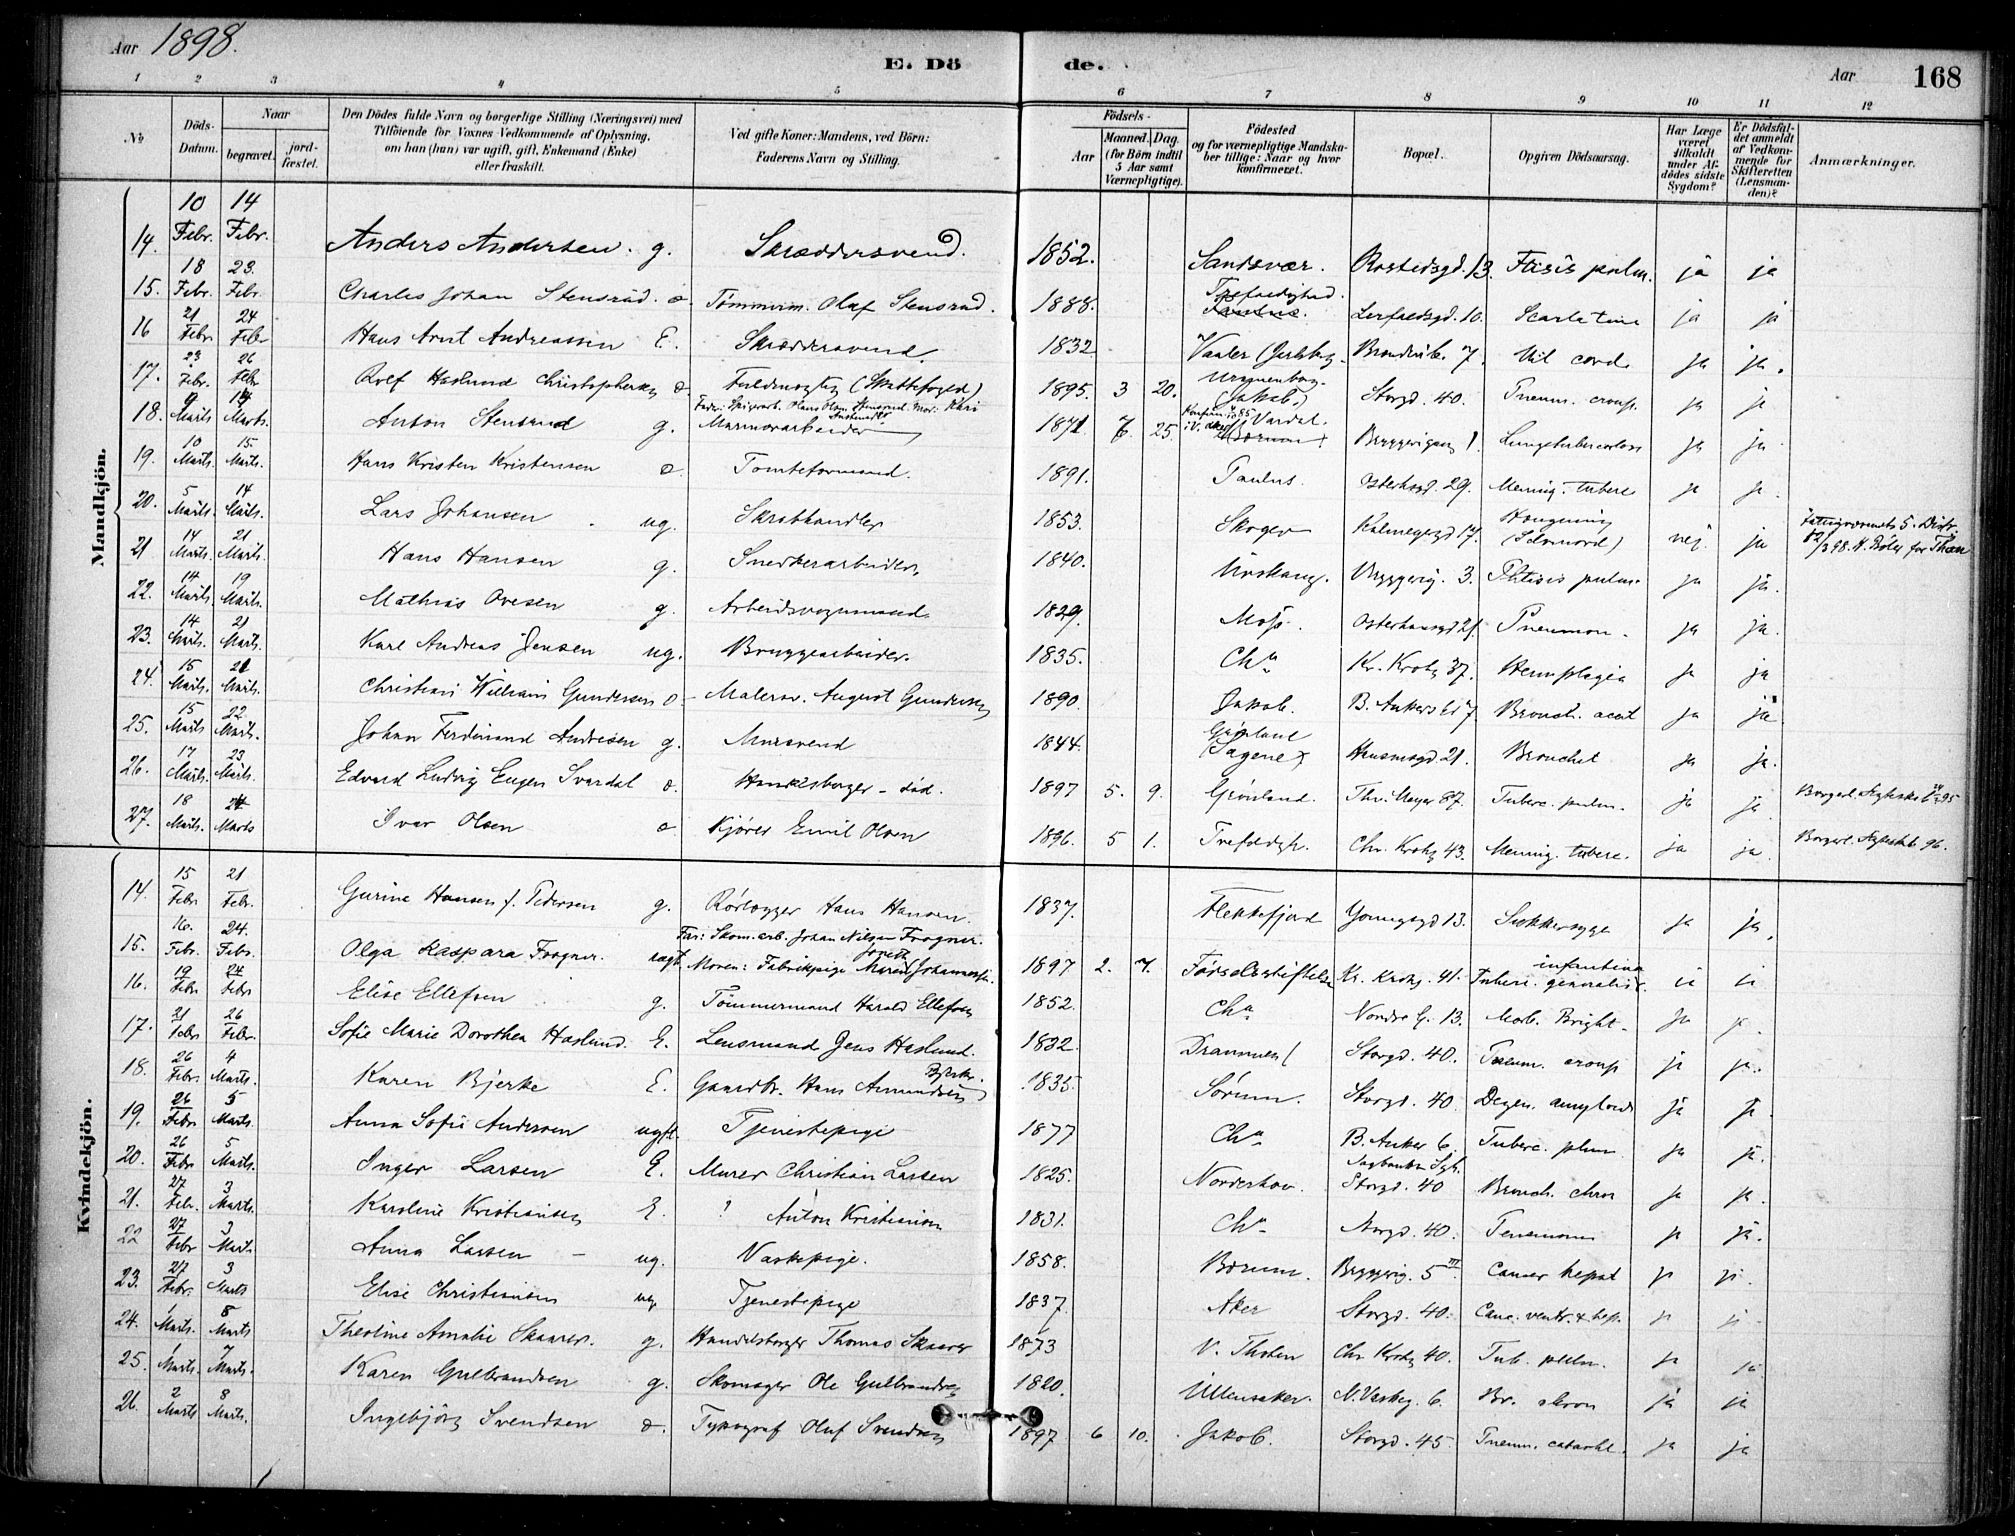 Aar 1898.
E. Döde.
Aar 168
1 2 3 4 5 6 7 8 9 10 11 12
No
Döds-Datum.
Naar
begravet.
jord-fæstet.
Den Dödes fulde Navn og borgerlige Stilling (Næringsvei) med Tilföiende for Voxnes Vedkommende af Oplysning, om han (hun) var ugift, gift, Enkemand (Enke) eller fraskilt.
Ved gifte Koner: Mandens, ved Börn: Faderens Navn og Stilling.
Födsels-
Aar
Maaned. Dag.
(for Börn indtil 5 Aar samt Værnepligtige).
Födested og for værnepligtige Mandskaber tillige: Naar og hvor konfirmeret.
Bopæl.
Opgiven Dödsaarsag.
Har Læge været tilkaldt under Afdödes sidste Sygdom?
Er Dödsfaldet anmeldt af Vedkommende for Skifteretten (Lensmanden)?
Anmærkninger.
Mandkjön.
14. 10 Febr. 14 Febr. Anders Andersen. g. Skræddersvend. 1852. Sandsvær. Rostedsgd. 13. Ftisis pulm. ja ja
15. 18 Febr. 23. Febr. Charles Johan Stensrud. Tømmerm. Olaf Stensrud. 1888. Trefoldighed. Lerfaldsgd. 10. Scarlatina ja ja
16 21 Febr 24 Febr Hans Arnt Andreassen E. Skræddersvend. 1832 Vaaler 7. Vit. cord. ja ja.
17. 23 Febr. 26 Febr Rolf Haslund Christophersen Fuldmægtig (Skattefoged) 1895. 3 20. Uranienborg. (Jakob.) Storgd. 40. Pneum. croup. ja ja
18. 9 Marts 14 Marts. Anton Stensrud g. Marmorarbeider 1871 7. 25. Vardal. Bryggerigaden 1. Lungetuberculose ja ja
19. 10 Marts. 15. Marts. Hans Kristen Kristensen Tomteformand. 1891. Paulus. Osterhsgd. 29. Mening. tuberc ja ja.
20. 5 Marts. 14 Marts. Lars Johansen ug. Skrabhandler 1853. Skoger Kalmegegd 17. Hængning (Selvmord) nej. ja Fattigvæsenets 5. Distr.
21 14 Marts. 21 Marts. Hans Hansen g. Snedkerarbeider. 1840. Urskaug. Bryggerig. 3. Phtisis pulm. ja ja.
22. 14 Marts. 19 Marts. Mathias Ovesen g. Arbeidsvognmand. 1829. Moss. Osterhausgd 21. Pneumon. ja ja.
23. 14 Marts. 21 Marts. Karl Andreas Jensen ug. Bryggearbeider. 1835. Cha Kr. Krohg 37. Hemiplegia ja ja
24. 15 Marts. 21 Marts. Christian William Gundersen Malersv. August Gundersen 1890. Jakob. B. Ankers Gd 7. Bronch. acut ja ja
25. 15 Marts 22 Marts. Johan Ferdinand Andresen g. Mursvend 1844. Grønland (Sagene) Hausmsgd 21. Bronchit ja ja.
26. 17 Marts. 23 Marts. Edvard Ludvig Eugen Svardal Handelsborger - død. 1897 5. 9. Grønland. Thv. Meyer 87. Tuberc. pulm. ja ja
27. 18 Marts. 24 Marts Ivar Olsen Kjører Emil Olsen 1896. 5 1. Trefoldgh. Chr. Krohg 43. Mening. tuberc. ja ja.
Kvindekjön.
14. 15 Febr 21 Febr. Gurine Hansen f. Pedersen g. Rørlægger Hans Hansen. 1837. Flekkefjord Youngsgd 13. Sukkersyge ja ja.
15. 16. Febr. 24. Febr. Olga Kaspara Frogner. ugft Far: Skom.arb. Johan Nilsen Frogner. Moren: Fabrikpige Johannessen. 1897 2. 7. Fødselsstiftelsen Kr. Krohg. 41. Tuberc. generalis infantum ja ja
16. 19 Febr 24 Febr Elise Ellefsen g. Tömmermand Harald Ellefsen 1852. Cha Nordre G. 13. Morb. Bright. ja ja.
17. 21 Febr 26 Febr. Sofie Marie Dorothea Haslund. E. Lensmand Jens Haslund. 1832. Drammen Storgd. 40. Pneum. croup ja ja.
18. 26 Febr. 4 Marts. Karen Bjerke E. Gaardbr. Hans Amundsen Bjerke. 1835. Sørum. Storgd. 40. Degen. amyloid ja ja.
19. 26 Febr 5 Marts. Anna Sofie Andersen ugft. Tjenestepige 1877 Cha B. Anker 6. Tuberc. pulm ja ja.
20. 26 Febr 5 Marts. Inger Larsen E. Murer Christian Larsen 1825. Norderhov. Storgd. 40 Bronch. chron ja ja.
21. 27 Febr. 3 Marts. Karoline Kristiansen E. ? Anton Kristiansen 1831. Cha Storgd. 40. Pneumoni ja ja.
22 27 Febr 3 Marts. Anna Larsen ug. Vaskepige. 1858. Bærum. Bryggerig. 5 III. Cancer hepat ja ja.
23. 27 Febr. 3 Marts Elise Christiansen ug Tjenestepige 1837. Aker Storgd. 40. Canc. ventr. & hep. ja ja
24. 1 Marts. 8 Marts Theoline Amalie Skaarer. g. Handelsborger Thomas Skaarer 1873 V. Thoten Chr. Krohg 40. Tub. pulm. ja ja
25. 1 Marts. 7 Marts. Karen Gulbrandsen g. Skomager Ole Gulbrandsen 1820. Ullensaker. N. Vaskeg. 6. Br. chron ja ja
26. 2 Marts 8 Marts. Ingebjörg Svendsen Typograf Oluf Svendsen 1897 6 10. Jakob. Storgd. 45 Pneum. catarhl. ja ja